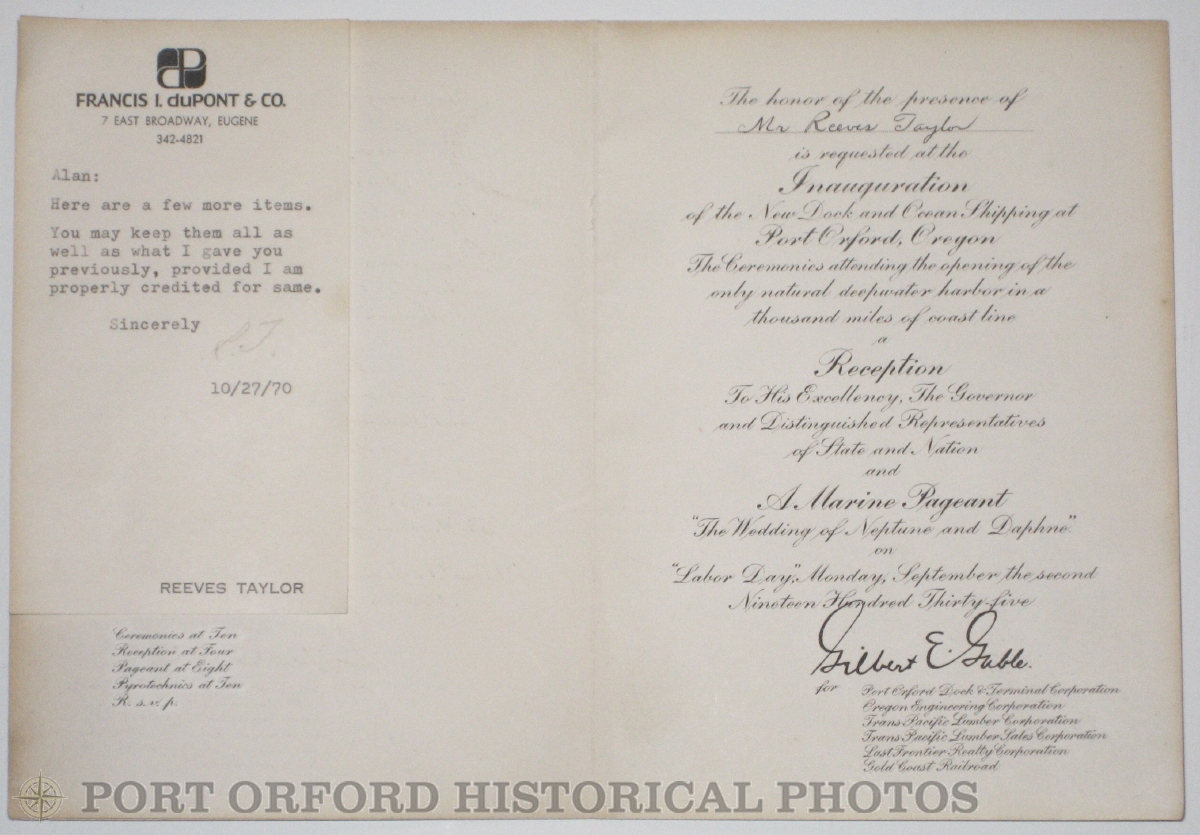 FRANCIS I. duPONT & CO.
7 EAST BROADWAY, EUGENE
342-4821
Alan:
Here are a few more items.
You may keep them all as
well as what I gave you
previously, provided I am
properly credited for same.
Sincerely
10/27/70
REEVES TAYLOR
Ceremonies at Ten
Reception at Four
Pageant at Eight
Pyrotechnics at Ten
R. s. v. p.
The honor of the presence of
Mr Reeves Taylor
is requested at the
Inauguration
of the New Dock and Ocean Shipping at
Port Orford, Oregon
The Ceremonies attending the opening of the
only natural deepwater harbor in a
thousand miles of coast line
a
Reception
To His Excellency, The Governor
and Distinguished Representatives
of State and Nation
and
A Marine Pageant
"The Wedding of Neptune and Daphne"
on
"Labor Day", Monday, September the second
Nineteen Hundred Thirty-five
Gilbert E. Gable.
for Port Orford Dock & Terminal Corporation
Oregon Engineering Corporation
Trans Pacific Lumber Corporation
Trans Pacific Lumber Sales Corporation
Last Frontier Realty Corporation
Gold Coast Railroad
PORT ORFORD HISTORICAL PHOTOS